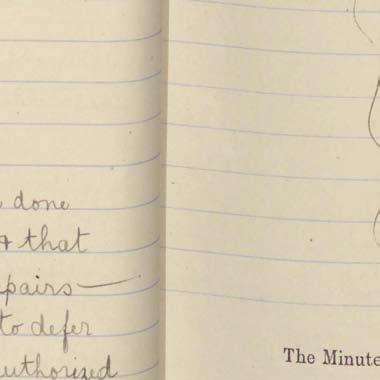 done
& that
pairs —
to defer
uthorized
The Minute